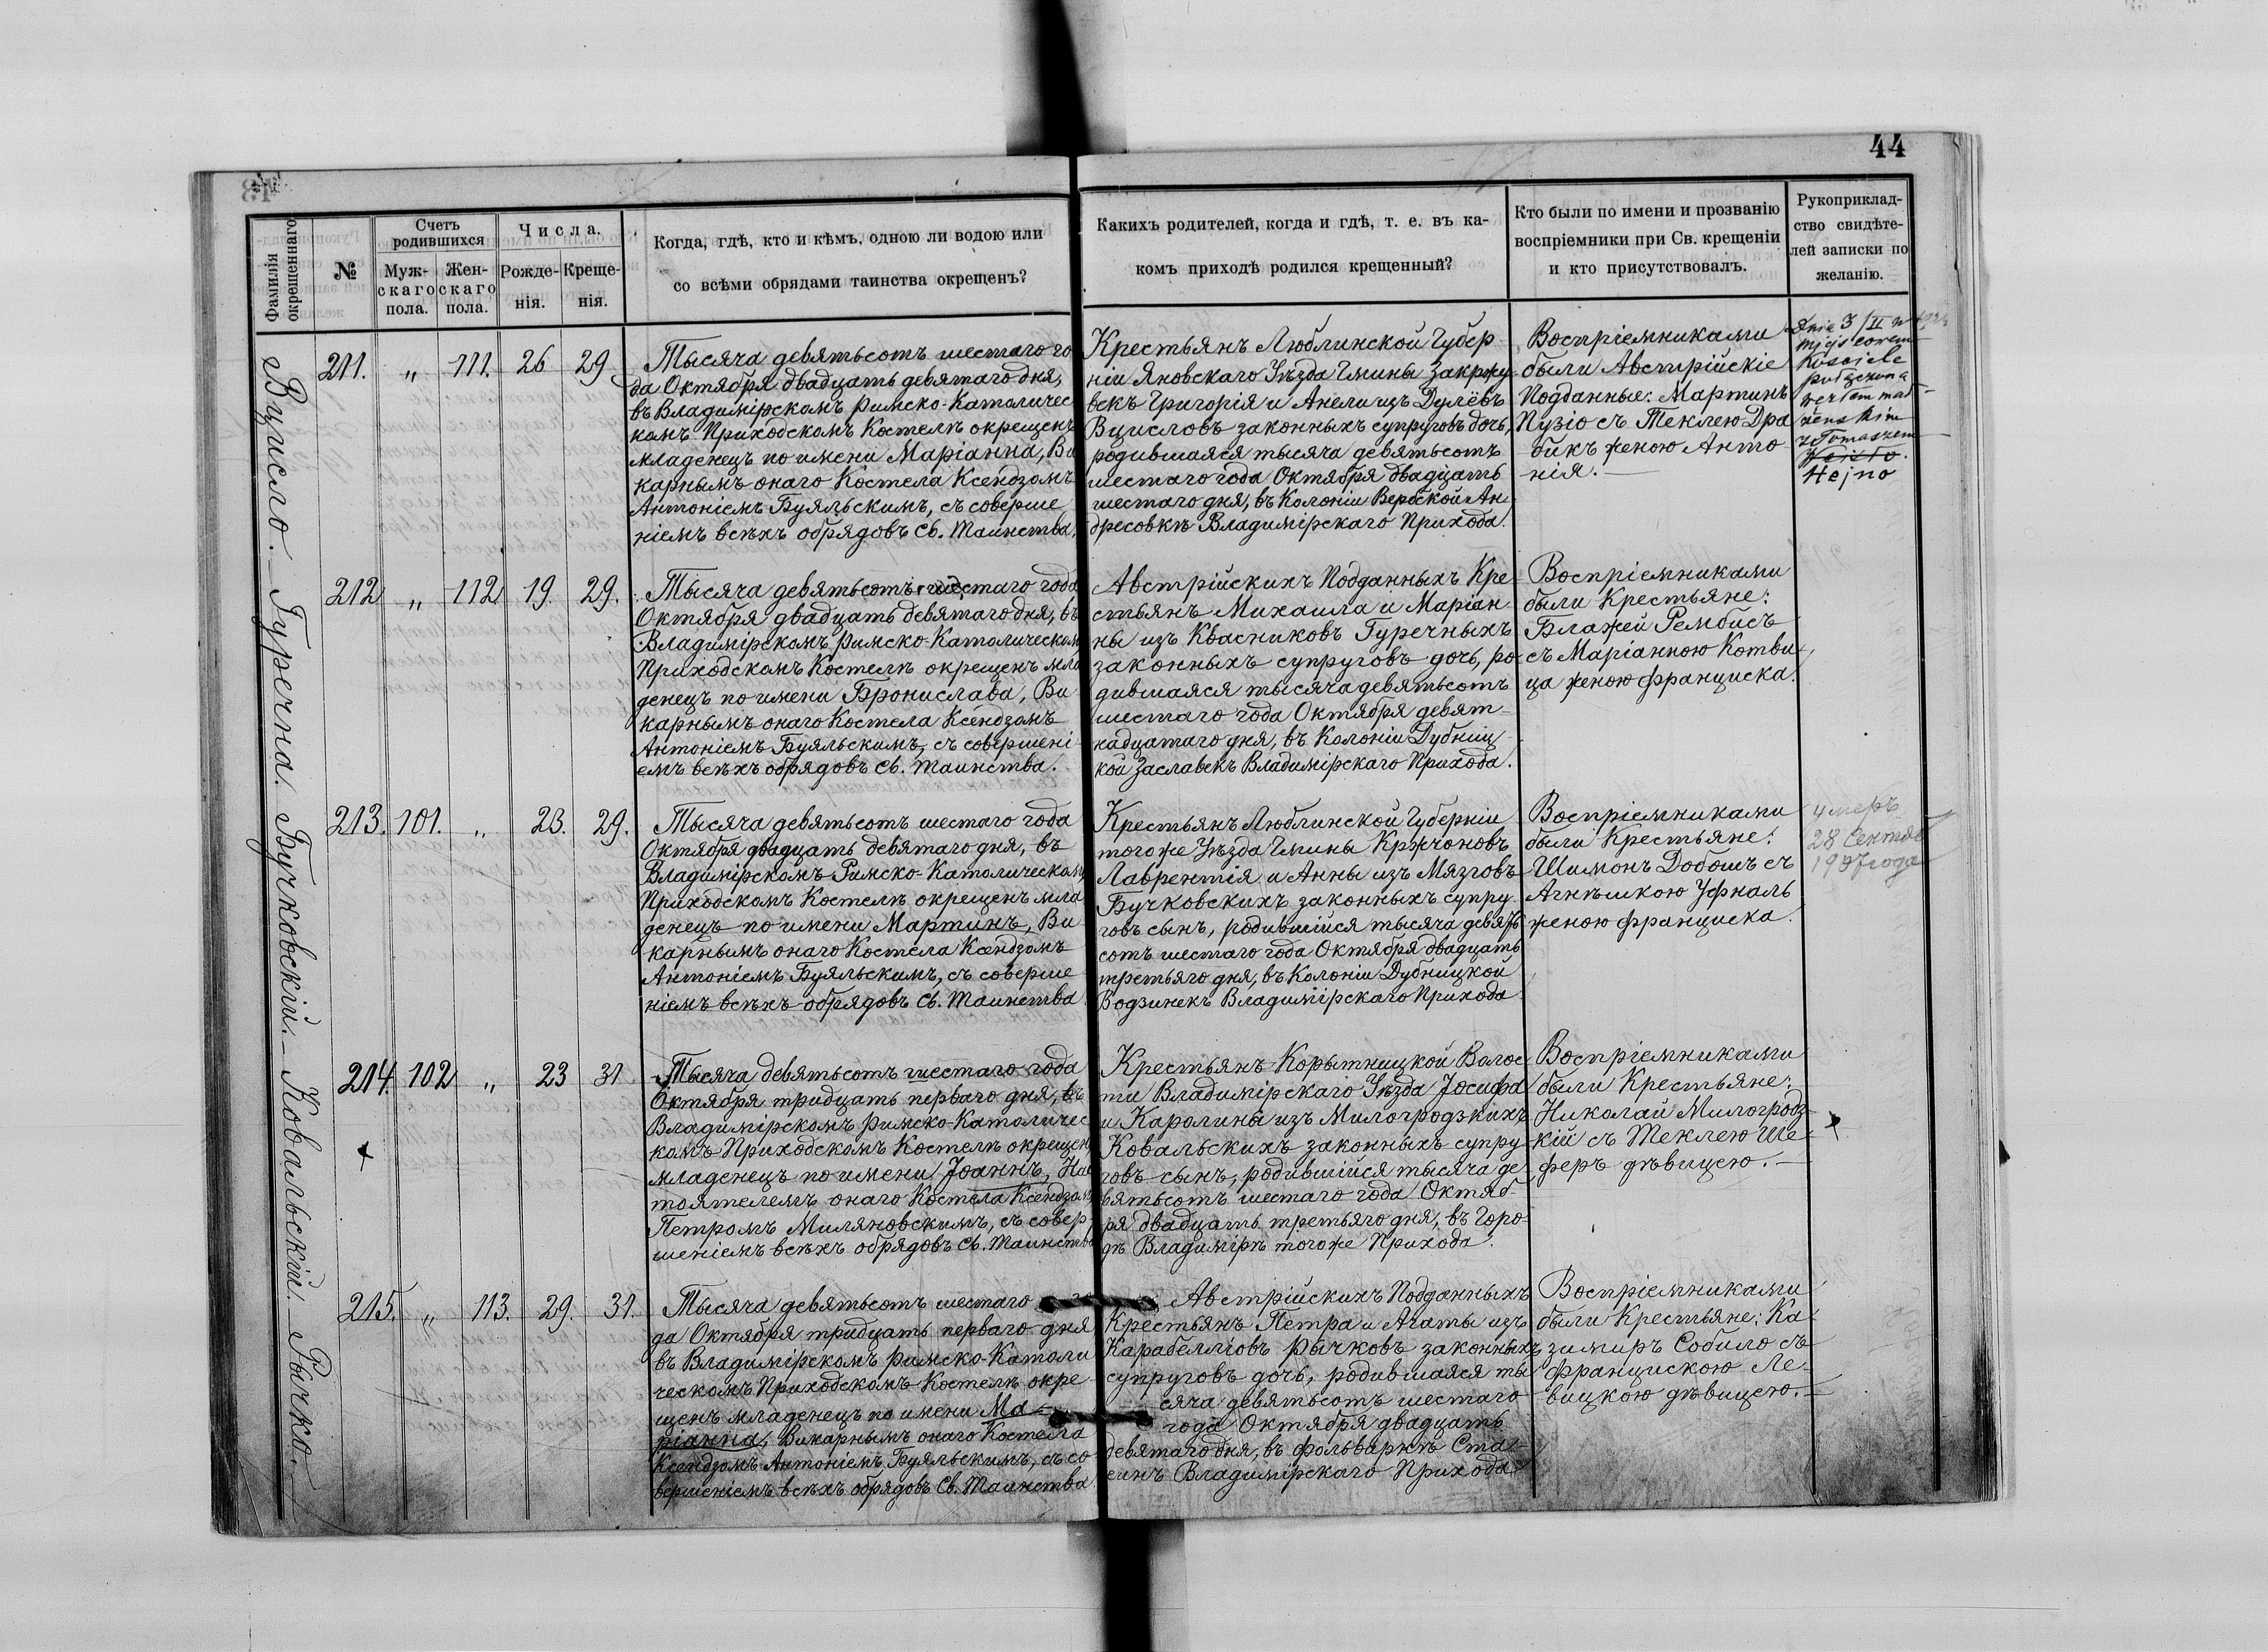 44
Фамилія окрещеннаго
№
Счетъ родившихся
Муж-
скаго
пола.
Жен-
скаго
пола.
Числа.
Рожде-
нія.
Креще-
нія.
Когда, гдѣ, кто и кѣмъ, одною ли водою или
со всѣми обрядами таинства окрещенъ?
Какихъ родителей, когда и гдѣ, т. е. въ ка-
комъ приходѣ родился крещенный?
Кто были по имени и прозванію
воспріемники при Св. крещеніи
и кто присутствовалъ.
Рукоприклад-
ство свидѣте-
лей записки по
желанію.
Вцисло. Гуречна. Бучковскій. Ковальскій. Рычко.
211. „ 111. 26 29
Тысяча девятьсотъ шестаго го
да Октября двадцать девятаго дня,
въ Владимірскомъ Римско-Католичес
комъ Приходскомъ Костелѣ окрещенъ
младенецъ по имени Маріанна, Ви
карнымъ онаго Костела Ксендзомъ
Антоніемъ Буяльскимъ, съ соверше
ніемъ всѣхъ обрядовъ Св. Таинства.
Крестьянъ Люблинской Губер
ніи Яновскаго Уѣзда Гмины Закржу
векъ Григорія и Анели изъ Дулёвъ
Вцисловъ законныхъ супруговъ дочь,
родившаяся тысяча девятьсотъ
шестаго года Октября двадцать
шестаго дня, въ Колоніи Вербской Ан
дресовкѣ Владимірскаго Прихода.
Воспріемниками
были Австрійскіе
Подданные: Мартинъ
Пузіо съ Теклею Дра
бикъ женою Анто-
нія.
Dnia 3/II
miejscowem
Kościele
połączona
węzłem mał
żeńskim
z Tomaszem
Hejno
212 „ 112 19. 29.
Тысяча девятьсотъ шестаго года
Октября двадцать девятаго дня, въ
Владимірскомъ Римско-Католическомъ
Приходскомъ Костелѣ окрещенъ мла
денецъ по имени Бронислава, Ви
карнымъ онаго Костела Ксендзомъ
Антоніемъ Буяльскимъ, съ совершені
емъ всѣхъ обрядовъ Св. Таинства.
Австрійскихъ Подданныхъ Кре
стьянъ Михаила и Маріан
ны изъ Квасниковъ Гуречныхъ
законныхъ супруговъ дочь, ро
дившаяся тысяча девятьсотъ
шестаго года Октября девят-
надцатаго дня, въ Колоніи Дубниц
кой Заславекъ Владимірскаго Прихода.
Воспріемниками
были Крестьяне:
Блажей Рембисъ
съ Маріанною Котви
ца женою Франциска.
213. 101. „ 23. 29.
Тысяча девятьсотъ шестаго года
Октября двадцать девятаго дня, въ
Владимірскомъ Римско-Католическомъ
Приходскомъ Костелѣ окрещенъ мла
денецъ по имени Мартинъ, Ви
карнымъ онаго Костела Ксендзомъ
Антоніемъ Буяльскимъ, съ соверше
ніемъ всѣхъ обрядовъ Св. Таинства
Крестьянъ Люблинской Губерніи
того же Уѣзда Гмины Кржчоновъ
Лаврентія и Анны изъ Мязговъ
Бучковскихъ законныхъ супру
говъ сынъ, родившійся тысяча девять
сотъ шестаго года Октября двадцать
третьяго дня, въ Колоніи Дубницкой
Водзинекъ Владимірскаго Прихода
Воспріемниками
были Крестьяне:
Шимонъ Добошъ съ
Агнѣшкою Уфналь
женою Франциска.
умеръ
28 Сентяб
1907 года
214. 102 „ 23 31
Тысяча девятьсотъ шестаго года
Октября тридцать перваго дня, въ
Владимірскомъ Римско-Католичес
комъ Приходскомъ Костелѣ окрещенъ
младенецъ по имени Іоаннъ, Нас
тоятелемъ онаго Костела Ксендзомъ
Петромъ Миляновскимъ, съ совер
шеніемъ всѣхъ обрядовъ Св. Таинства
Крестьянъ Корытницкой Волос
ти Владимірскаго Уѣзда Іосифа
и Каролины изъ Милогродзкихъ
Ковальскихъ законныхъ супру
говъ сынъ, родившійся тысяча де
вятьсотъ шестаго года Октяб-
ря двадцать третьяго дня, въ Горо
дѣ Владимірѣ того же Прихода.
Воспріемниками
были Крестьяне:
Николай Милогродз
кій съ Теклею Ше
феръ дѣвицею.
215. „ 113. 29. 31.
Тысяча девятьсотъ шестаго го
да Октября тридцать перваго дня
въ Владимірскомъ Римско-Католи
ческомъ Приходскомъ Костелѣ окре
щенъ младенецъ по имени Ма-
ріанна, Викарнымъ онаго Костела
Ксендзомъ Антоніемъ Буяльскимъ, съ со
вершеніемъ всѣхъ обрядовъ Св. Таинства
Австрійскихъ Подданныхъ
Крестьянъ Петра и Агаты изъ
Карабелловъ Рычковъ законныхъ
супруговъ дочь, родившаяся ты
сяча девятьсотъ шестаго
года Октября двадцать
девятаго дня, въ фольваркѣ Ста
синъ Владимірскаго Прихода
Воспріемниками
были Крестьяне: Ка
зимиръ Собило съ
Францискою Ле-
вицкою дѣвицею.